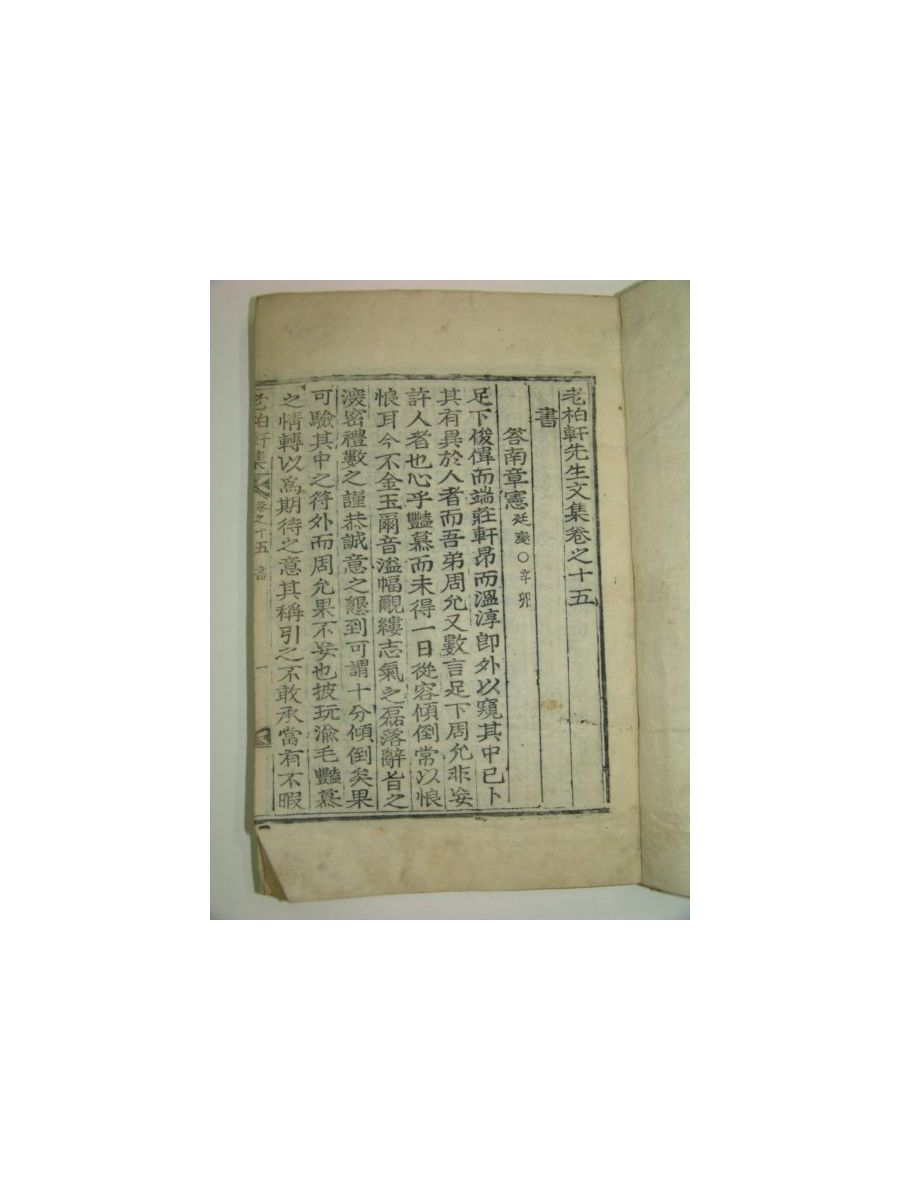 老柏軒先生文集卷之十五
書
答南章憲廷燮○辛卯
足下俊偉而端莊軒昂而溫淳卽外以窺其中已卜
其有異於人者而吾弟周允又數言足下周允非妄
許人者也心乎豔慕而未得一日從容傾倒常以悢
悢耳今不金玉爾音溢幅覼縷志氣之磊落辭旨之
濅密禮數之謹恭誠意之懇到可謂十分傾倒矣果
可驗其中之符外而周允果不妄也披玩渝毛豔慕
之情轉以爲期待之意其稱引之不敢承當有不暇
老柏軒集 卷之十五 書 一